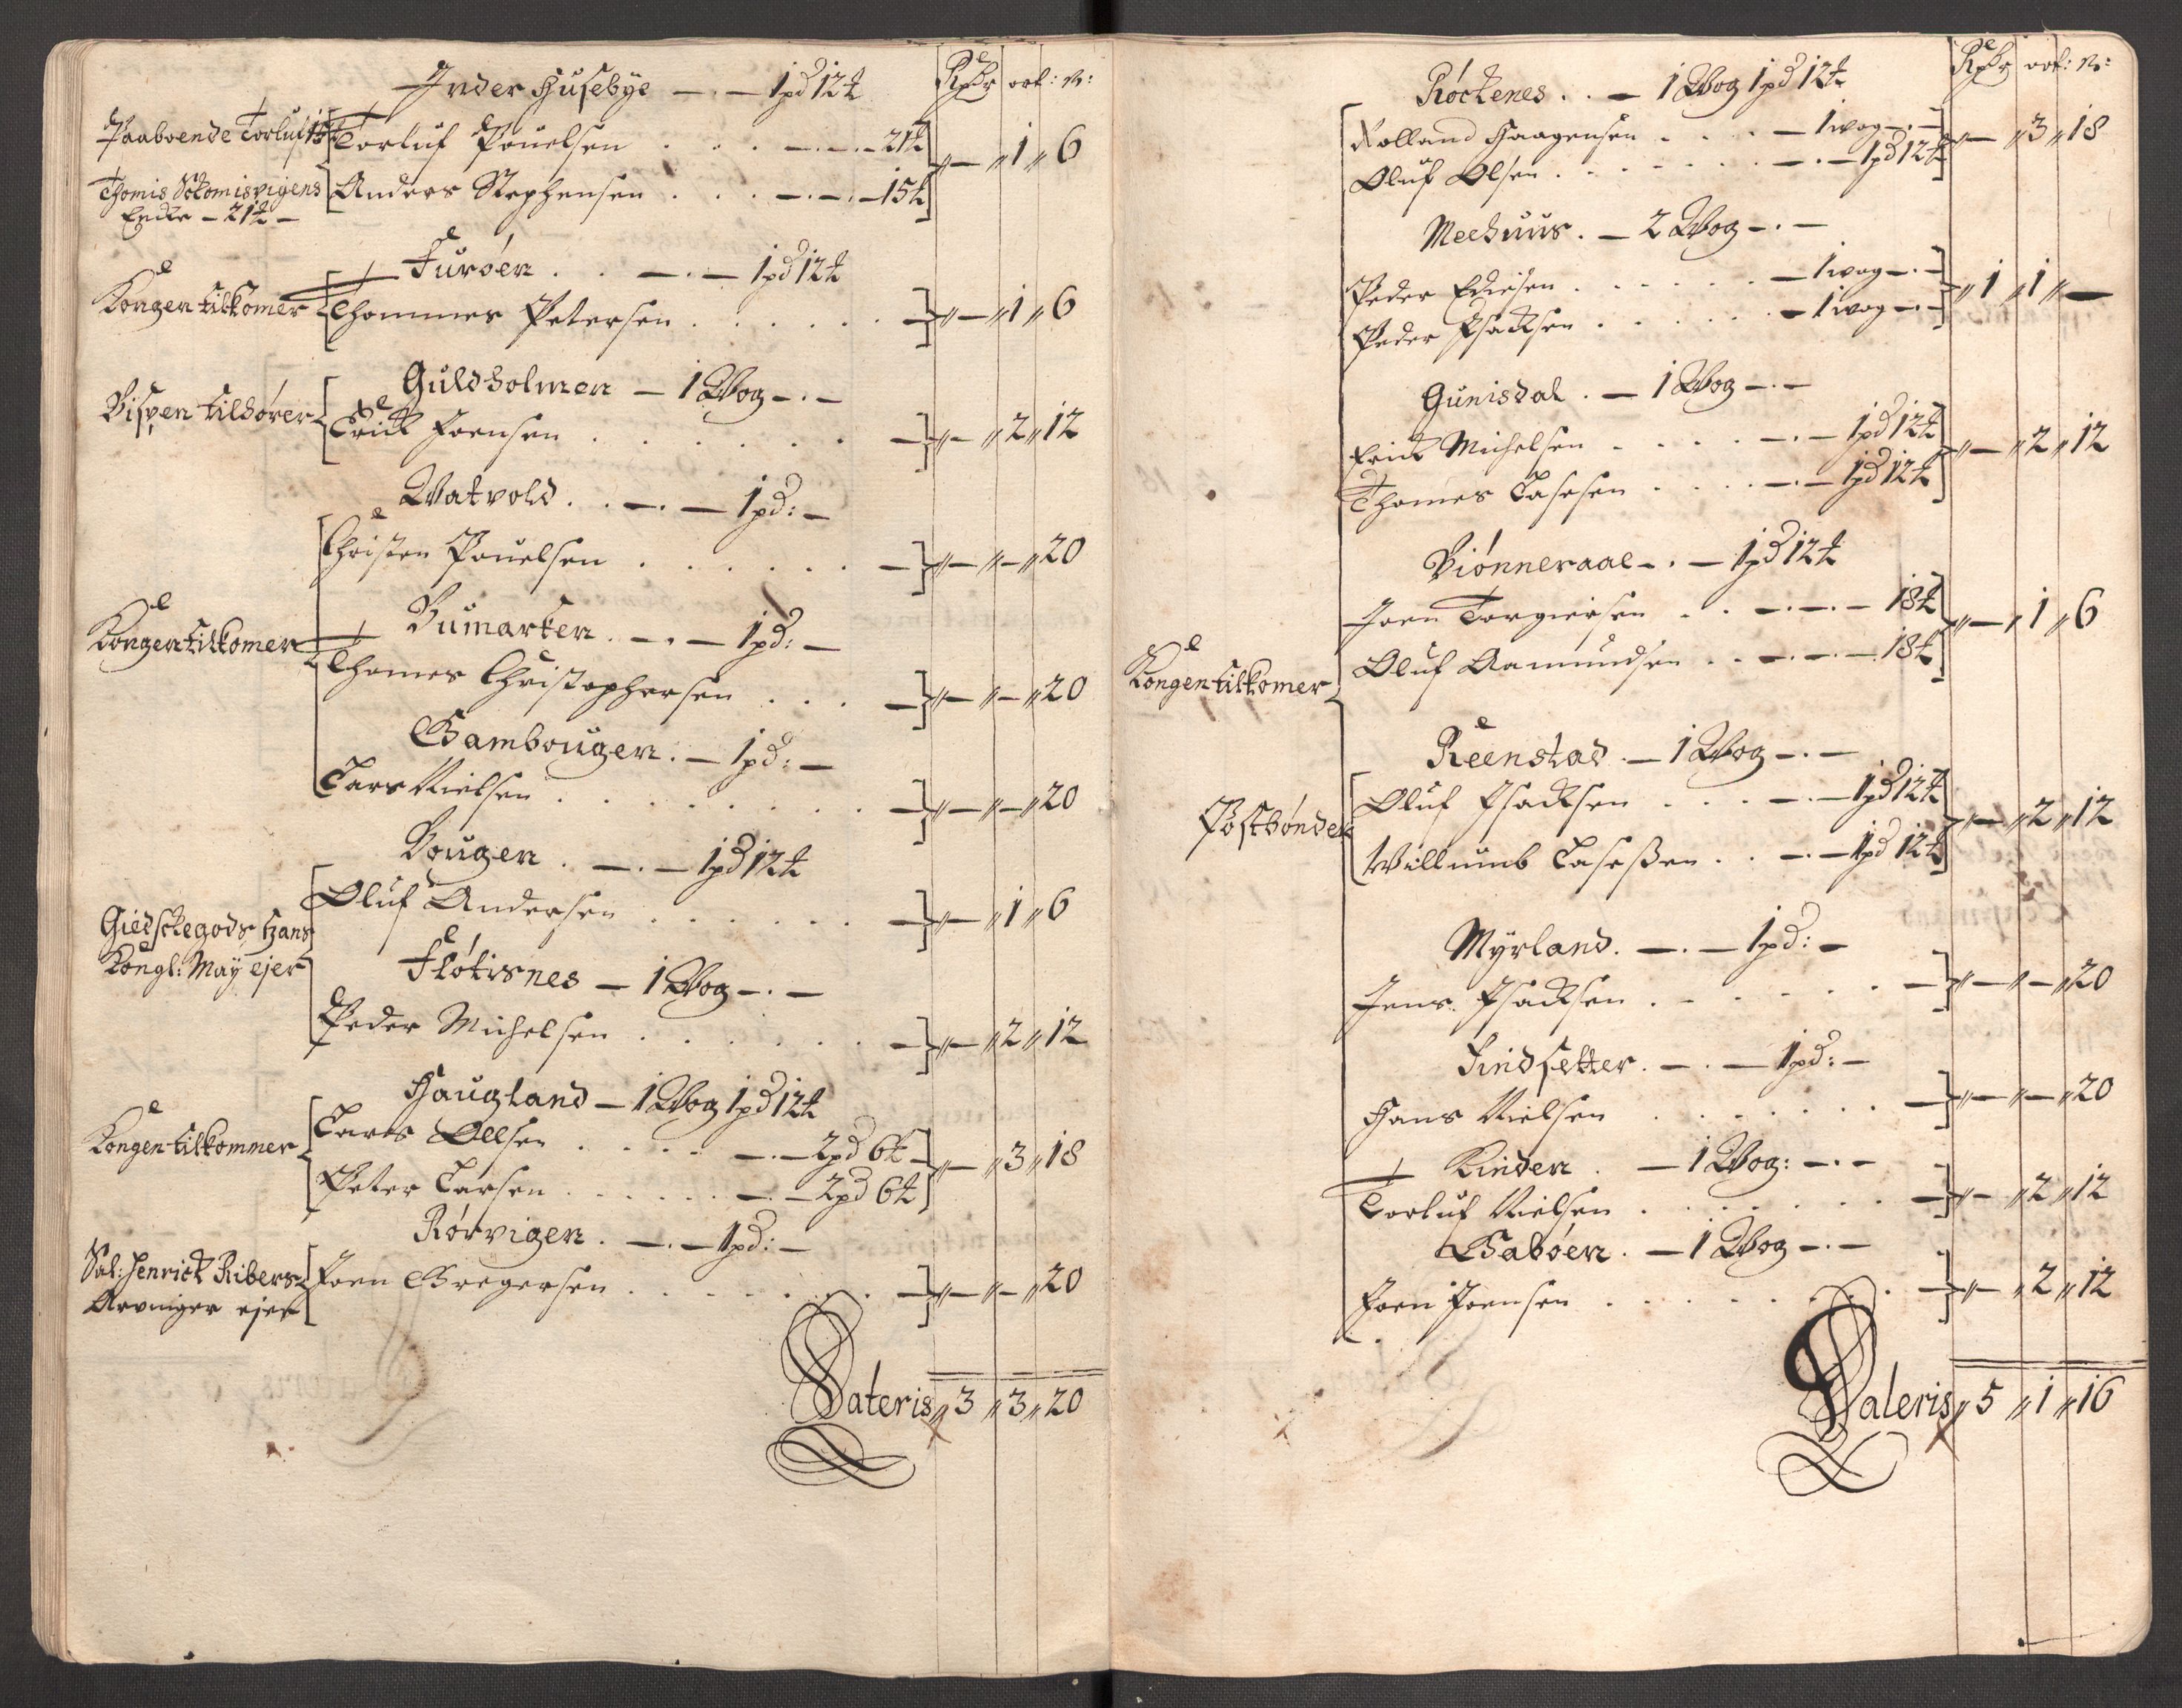 Rdr ort: s:
Inder Husebye — . — 1pd 12℔
Paaboende Torluf 15℔
Torluf Pouelsen . . . — . — . — 21℔ „— „1„ 6
Thomis Solomisvigens
Anders Stephensen . . . — . — . — 15℔
Encke — 21℔ —
Furøen . . — . — 1pd 12℔
Kongen tilkomer
Thommes Petersen . . . . . . — „— „1„ 6
Guldholmen — 1 Wog — . —
Bispen tilhører
Erick Joensen . . . . . . — „— „2„ 12
Watvold . . — . — 1pd: —
Christen Pouelsen . . . . . . — „— „— „20
Bumarken . — . — 1pd: —
Kongen tilkomer
Thomes Christophersen . . . — „— „— „20
Gambougen . — 1pd: —
Lars Nielsen . . . . . . . — „— „— „20
Bougen . — . — 1pd 12℔
Oluf Andersen . . . . . . — „— „1„ 6
Giedschegods Hans
Kongl: May ejer
Fløtisnes — 1 Wog — . —
Peder Michelsen . . . . . . — „— „2„ 12
Haugland — 1 Wog 1pd 12℔
Kongen tilkommer
Lars Ollsen . . . . — . — 2pd 6℔ — „— „3„ 18
Peter Larsen . . . . . . — . — 2pd 6℔
Rørvigen . — . — 1pd: —
Sal: Henrick Ribers
Joen Gregersen . . . . . . . — „— „— „20
Arvinger ejer
Lateris „ 3 „ 3 „ 20
Rdr ort: s:
Røckenes . . — 1 Wog 1pd 12℔
Rolland Haagensen . . . . — 1 wog — . — „— „3„ 18
Oluf Olsen . . . . . . — . — 1pd 12℔
Meehuus . — 2 Wog — . —
Peder Edisen . . . . . . — 1 wog — . — „ 1 „ 1 „ —
Peder Isacksen . . . . . . — 1 wog — . —
Gunisdal . — 1 Wog — . —
Erick Michelsen . . . . — . — 1pd 12℔ „— „2„ 12
Thomes Lasesen . . . . — . — 1pd 12℔
Biønneraae — . — 1pd 12℔
Joen Torgiersen . . — . — . — 18℔ „— „ 1 „ 6
Oluf Aamundsen . . — . — . — 18℔
Kongen tilkomer
Reenstad . — 1 Wog — . —
Oluf Isacksen . . . — . — 1pd 12℔ „— „2„ 12
Postbønder
Willumb Laseßen . . — . — 1pd 12℔
Myrland . — . — 1pd: —
Jens Isacksen . . . . . . — „— „— „20
Findsetter . — . — 1pd: —
Hans Nielsen . . . . . . . — „— „— „20
Kinden . — 1 Wog: — . —
Torluf Nielsen . . . . . . — „— „2„ 12
Gabøen . — 1 Wog — . —
Joen Joensen . . . . . . . — „— „2„ 12
Lateris „ 5 „ 1 „ 16